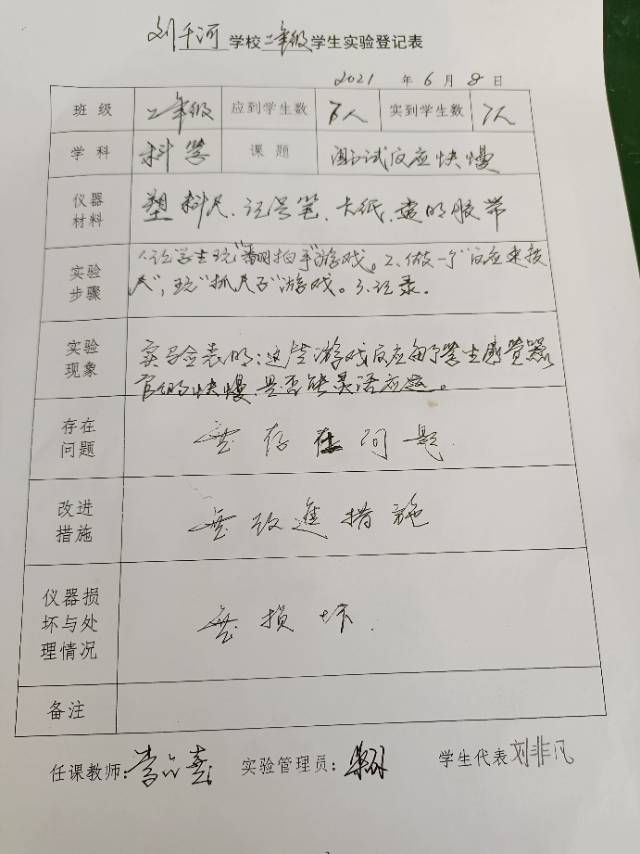 刘千河学校二年级学生实验登记表
2021年6月8日
班级 二年级 应到学生数 7人 实到学生数 7人
学科 科学 课题 测试反应快慢
仪器材料 塑料尺、记号笔、卡纸、透明胶带
实验步骤 1.让学生玩"翻拍手"游戏。2.做一个"反应速技
尺",玩"抓尺子"游戏。3.记录。
实验现象 实验表明:这些游戏反应了学生感觉器
官的快慢,是否能灵活应运。
存在问题 无存在问题.
改进措施 无改進措施
仪器损坏与处理情况 无损坏.
备注
任课教师: 实验管理员: 学生代表 刘非凡